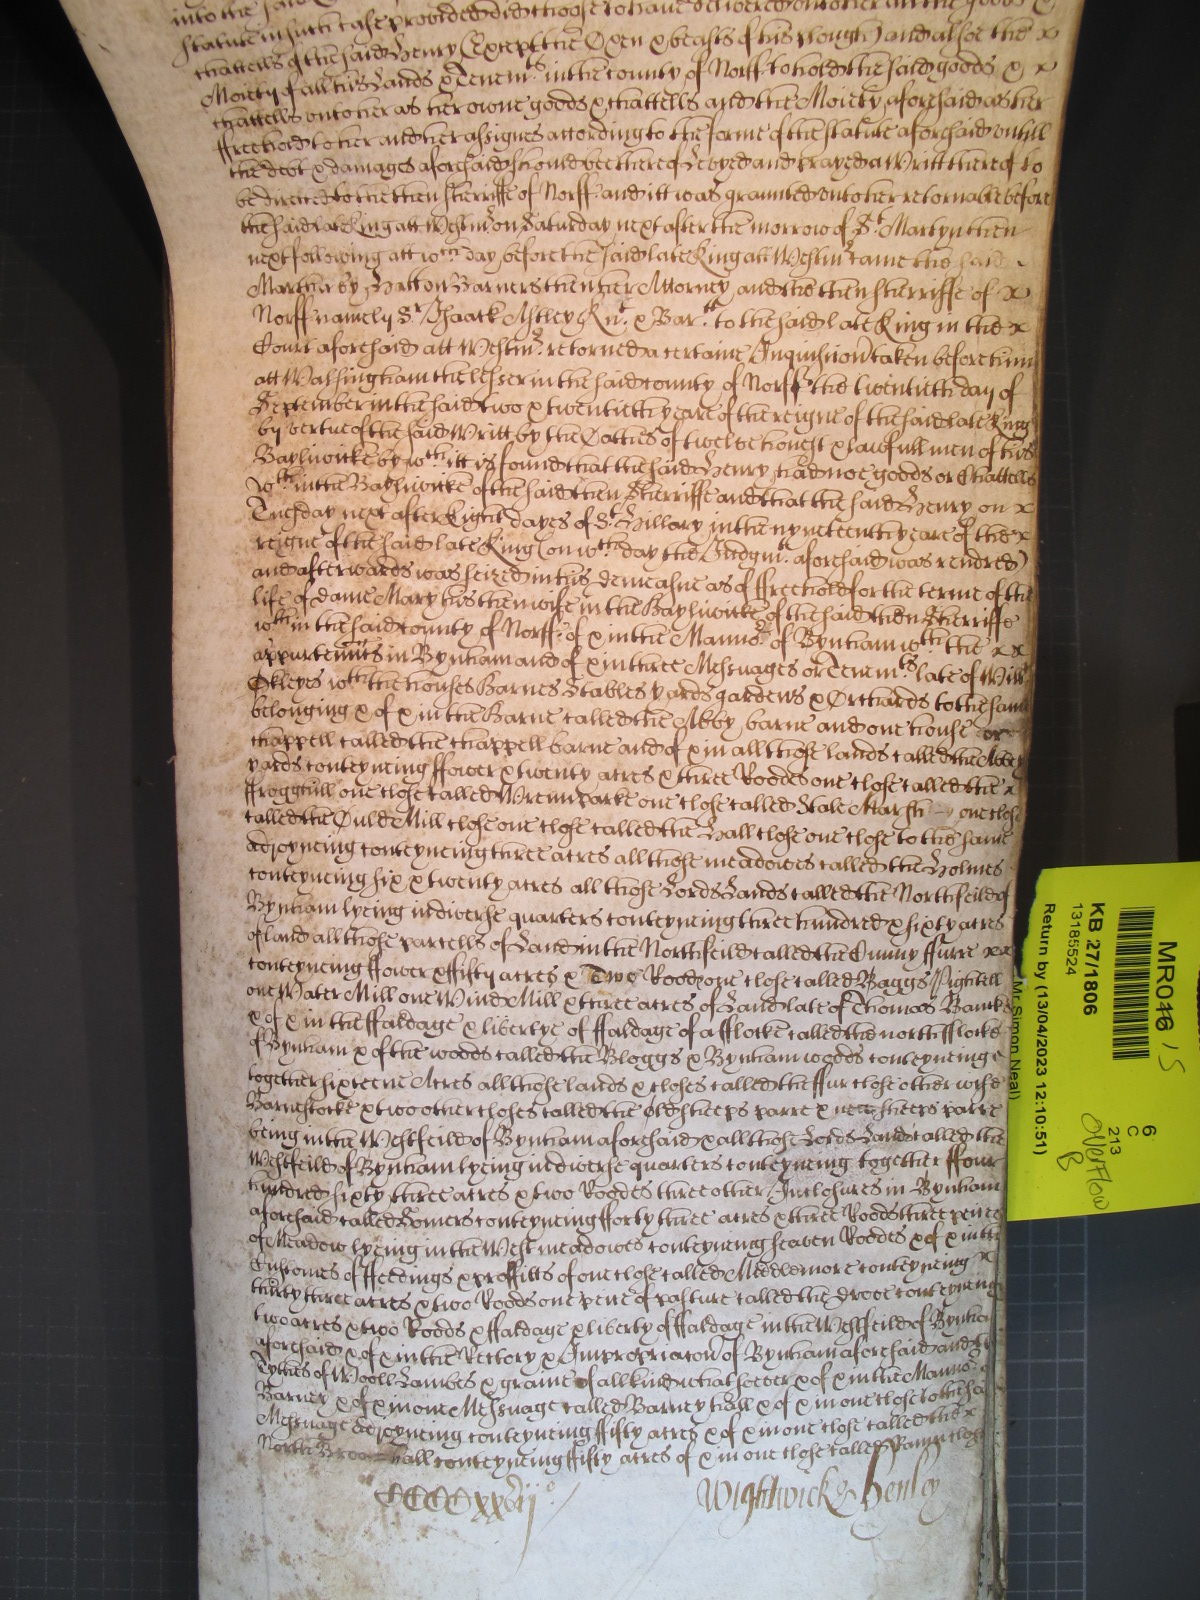 into the said
statute in such case provided did choose to have delivered unto her all the goods x
chattells of the said Henry (Except the Oxen & beasts of his plough) and alsoe the x
Moiety of all his Lands & Tenemts in the county of Norff to hold the said goods & x
chattells unto her as her owne goods & chattells and the Moiety aforesaid as her
ffreehold to her and her assignes according to the forme of the statute aforesaid untill
the debt & damages aforesaid should bee thereof Levyed and prayed a Writt thereof to
be directed to the then Sherriffe of Norff and itt was graunted unto her retornable before
the said late King att Westmr on Saturday next after the morrow of St Martyn then
next following att wch day before the said late King att Westmr came the said
Martha by Hatton Barners then her Attorney and the then Sherriffe of x
Norff namely Sr Isaack Astley Knt & Bart to the said late King in the x
Court aforesaid att Westmr retorned a certaine Inquisicon taken before him
att Walsingham the lesser in the said county of Norff the twentieth day of
September in the said two & twentieth yeare of the reigne of the said late King
by vertue of the said Writt by the Oathes of twelve honest & lawfull men of his
Bayliwicke by wch itt is found that the said Henry had noe goods or Chattells
wthin the Bayliwicke of the said then Sherriffe and that the said Henry on x
Tuesday next after Eight dayes of St Hillary in the nyneteenth yeare of the x
reigne of the said late King (on wch day the Judgmt aforesaid was rendred)
and afterwards was seized in his demeasne as of ffreehold for the terme of the
life of dame Mary his then wife in the Bayliwicke of the said then Sherriffe
wthin the said county of Norff of & in the Mannor of Bynham wth the x x
appurtennts in Bynham and of & in three Messuages or Tenemts late of Willm
Okleyes wth the houses Barnes Stables yards gardens & Orchards to the same
belonging & of & in the Barne called the Abby barne and one house or
chappell called the chappell barne and of & in all those lands called the Abbey
yards conteyneing ffower & twenty acres & three Roodes one close called the x
ffrogghill one close called Wrenn parke one close called Stale Marsh one close
called the Ould Mill close one close called the Hall close one close to the same
adjoyneing conteyneing three acres all those meadowes called the Holmes
conteyneing six & twenty acres all those Lords Lands called the Northfeild of
Bynham lyeing in diverse quarters conteyneing three hundred & sixty acres
of land all those parcells of Land in the Northfeild called the Cunny ffurre x x
conteyneing ffower & ffifty acres & Two Roods one close called Baggs Pightell
one Water Mill one Wind Mill & three acres of Land late of Thomas Banks
& of & in the ffaldage & libertye of ffaldage of a fflocke called the north fflocke
of Bynham & of the woods called the Bloggs & Bynham woods conteyneinge
together sixteene Acres all those lands & closes called the ffur close other wise
Barnestocke & two other closes called the old sheeps parre & new sheeps parre
being in the Westfeild of Bynham aforesaid & all those Lords Lands called the
Westfeild of Bynham lyeing in diverse quarters conteyneing together ffour
hundred sixty three acres & two Roodes three other Inclosures in Bynham
aforesaid called Homers conteyneing fforty three acres & three Roods three peeces
of Meadow lyeing in the West meadowes conteyneing seaven Roodes & of & in the
Customes of ffeedings & proffitts of one close called Meddlemore conteyneing x
thirty three acres & two Roods one peice of pasture called the drove conteyneing
two acres & two Roods & ffaldage & liberty of ffaldage in the Westfeild of Bynham
aforesaid & of & in the Rectory & Impropriacon of Bynham aforesaid and
Tythes of Wooll Lambes & graine of all kind whatsoever & of & in the Mannor of
Barney & of & in one Messuage called Barney hall & of & in one close to the said
Messuage adjoyneing conteyneing ffifty acres & of & in one close called the x
North hall conteyneing ffifty acres of & in one close called close
CCCCxxvijo
Wightwick & Henley
MR046 / 5
KB 27/1806
13185524
Return by (13/04/2023 12:10:51)
Mr Simon Neal)
6
C
213
Overflow
B